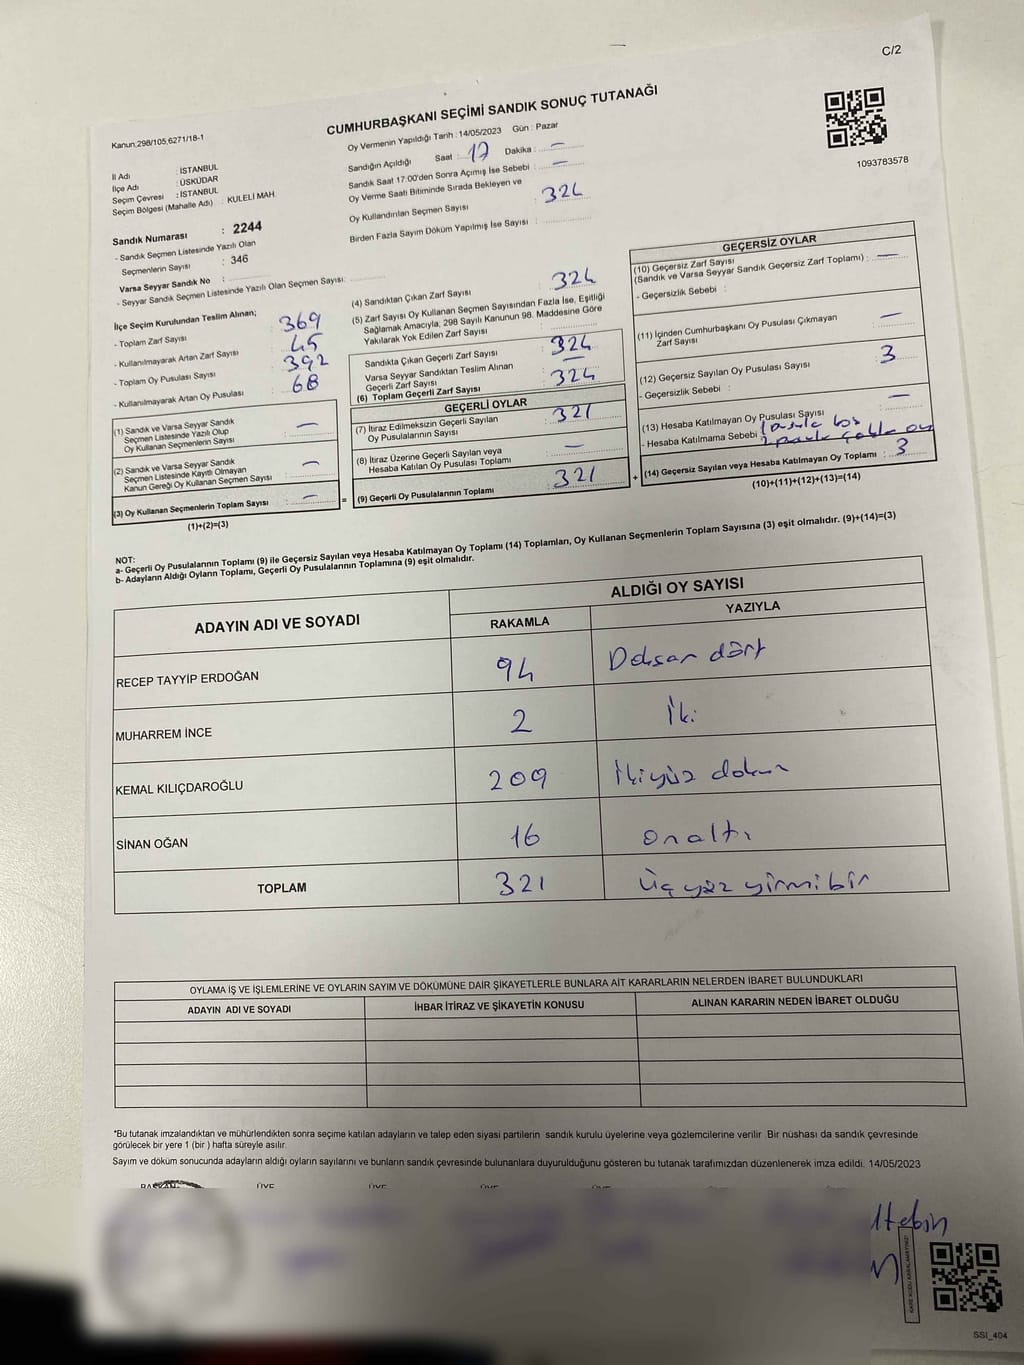 C/2
CUMHURBAŞKANI SEÇİMİ SANDIK SONUÇ TUTANAĞI
Kanun,298/105,6271/18-1
1093783578
İl Adı : İSTANBUL
İlçe Adı : ÜSKÜDAR
Seçim Çevresi : İSTANBUL
Seçim Bölgesi (Mahalle Adı) : KULELİ MAH.
Sandık Numarası : 2244
- Sandık Seçmen Listesinde Yazılı Olan
Seçmenlerin Sayısı : 346
Varsa Seyyar Sandık No :
- Seyyar Sandık Seçmen Listesinde Yazılı Olan Seçmen Sayısı:
Oy Vermenin Yapıldığı Tarih : 14/05/2023 Gün : Pazar
Sandığın Açıldığı Saat : 17 Dakika : —
Sandık Saat 17:00'den Sonra Açımış İse Sebebi : —
Oy Verme Saati Bitiminde Sırada Bekleyen ve
Oy Kullandırılan Seçmen Sayısı : 324
Birden Fazla Sayım Döküm Yapılmış İse Sayısı :
İlçe Seçim Kurulundan Teslim Alınan;
- Toplam Zarf Sayısı : 369
- Kullanılmayarak Artan Zarf Sayısı : 45
- Toplam Oy Pusulası Sayısı : 392
- Kullanılmayarak Artan Oy Pusulası : 68
(1) Sandık ve Varsa Seyyar Sandık
Seçmen Listesinde Yazılı Olup
Oy Kullanan Seçmenlerin Sayısı : —
(2) Sandık ve Varsa Seyyar Sandık
Seçmen Listesinde Kayıtlı Olmayan
Kanun Gereği Oy Kullanan Seçmen Sayısı : —
(3) Oy Kullanan Seçmenlerin Toplam Sayısı : —
(1)+(2)=(3)
=
(4) Sandıktan Çıkan Zarf Sayısı : 324
(5) Zarf Sayısı Oy Kullanan Seçmen Sayısından Fazla İse, Eşitliği
Sağlamak Amacıyla, 298 Sayılı Kanunun 98. Maddesine Göre
Yakılarak Yok Edilen Zarf Sayısı :
Sandıkta Çıkan Geçerli Zarf Sayısı : 324
Varsa Seyyar Sandıktan Teslim Alınan
Geçerli Zarf Sayısı : —
(6) Toplam Geçerli Zarf Sayısı : 324
GEÇERLİ OYLAR
(7) İtiraz Edilmeksizin Geçerli Sayılan
Oy Pusulalarının Sayısı : 321
(8) İtiraz Üzerine Geçerli Sayılan veya
Hesaba Katılan Oy Pusulası Toplamı : —
(9) Geçerli Oy Pusulalarının Toplamı : 321
+
GEÇERSİZ OYLAR
(10) Geçersiz Zarf Sayısı
(Sandık ve Varsa Seyyar Sandık Geçersiz Zarf Toplamı) : —
- Geçersizlik Sebebi :
(11) İçinden Cumhurbaşkanı Oy Pusulası Çıkmayan
Zarf Sayısı : —
(12) Geçersiz Sayılan Oy Pusulası Sayısı : 3
- Geçersizlik Sebebi :
(13) Hesaba Katılmayan Oy Pusulası Sayısı : —
- Hesaba Katılmama Sebebi
(14) Geçersiz Sayılan veya Hesaba Katılmayan Oy Toplamı : 3
(10)+(11)+(12)+(13)=(14)
NOT:
a- Geçerli Oy Pusulalarının Toplamı (9) ile Geçersiz Sayılan veya Hesaba Katılmayan Oy Toplamı (14) Toplamları, Oy Kullanan Seçmenlerin Toplam Sayısına (3) eşit olmalıdır. (9)+(14)=(3)
b- Adayların Aldığı Oyların Toplamı, Geçerli Oy Pusulalarının Toplamına (9) eşit olmalıdır.
ADAYIN ADI VE SOYADI
ALDIĞI OY SAYISI
RAKAMLA YAZIYLA
RECEP TAYYİP ERDOĞAN 94 Doksan dört
MUHARREM İNCE 2 İki
KEMAL KILIÇDAROĞLU 209 İkiyüz dokuz
SİNAN OĞAN 16 onaltı
TOPLAM 321 Üç yüz yirmi bir
OYLAMA İŞ VE İŞLEMLERİNE VE OYLARIN SAYIM VE DÖKÜMÜNE DAİR ŞİKAYETLERLE BUNLARA AİT KARARLARIN NELERDEN İBARET BULUNDUKLARI
ADAYIN ADI VE SOYADI İHBAR İTİRAZ VE ŞİKAYETİN KONUSU ALINAN KARARIN NEDEN İBARET OLDUĞU
*Bu tutanak imzalandıktan ve mühürlendikten sonra seçime katılan adayların ve talep eden siyasi partilerin sandık kurulu üyelerine veya gözlemcilerine verilir Bir nüshası da sandık çevresinde
görülecek bir yere 1 (bir ) hafta süreyle asılır.
Sayım ve döküm sonucunda adayların aldığı oyların sayılarını ve bunların sandık çevresinde bulunanlara duyurulduğunu gösteren bu tutanak tarafımızdan düzenlenerek imza edildi. 14/05/2023
BAŞKAN ÜYE ÜYE ÜYE ÜYE
SSI_404